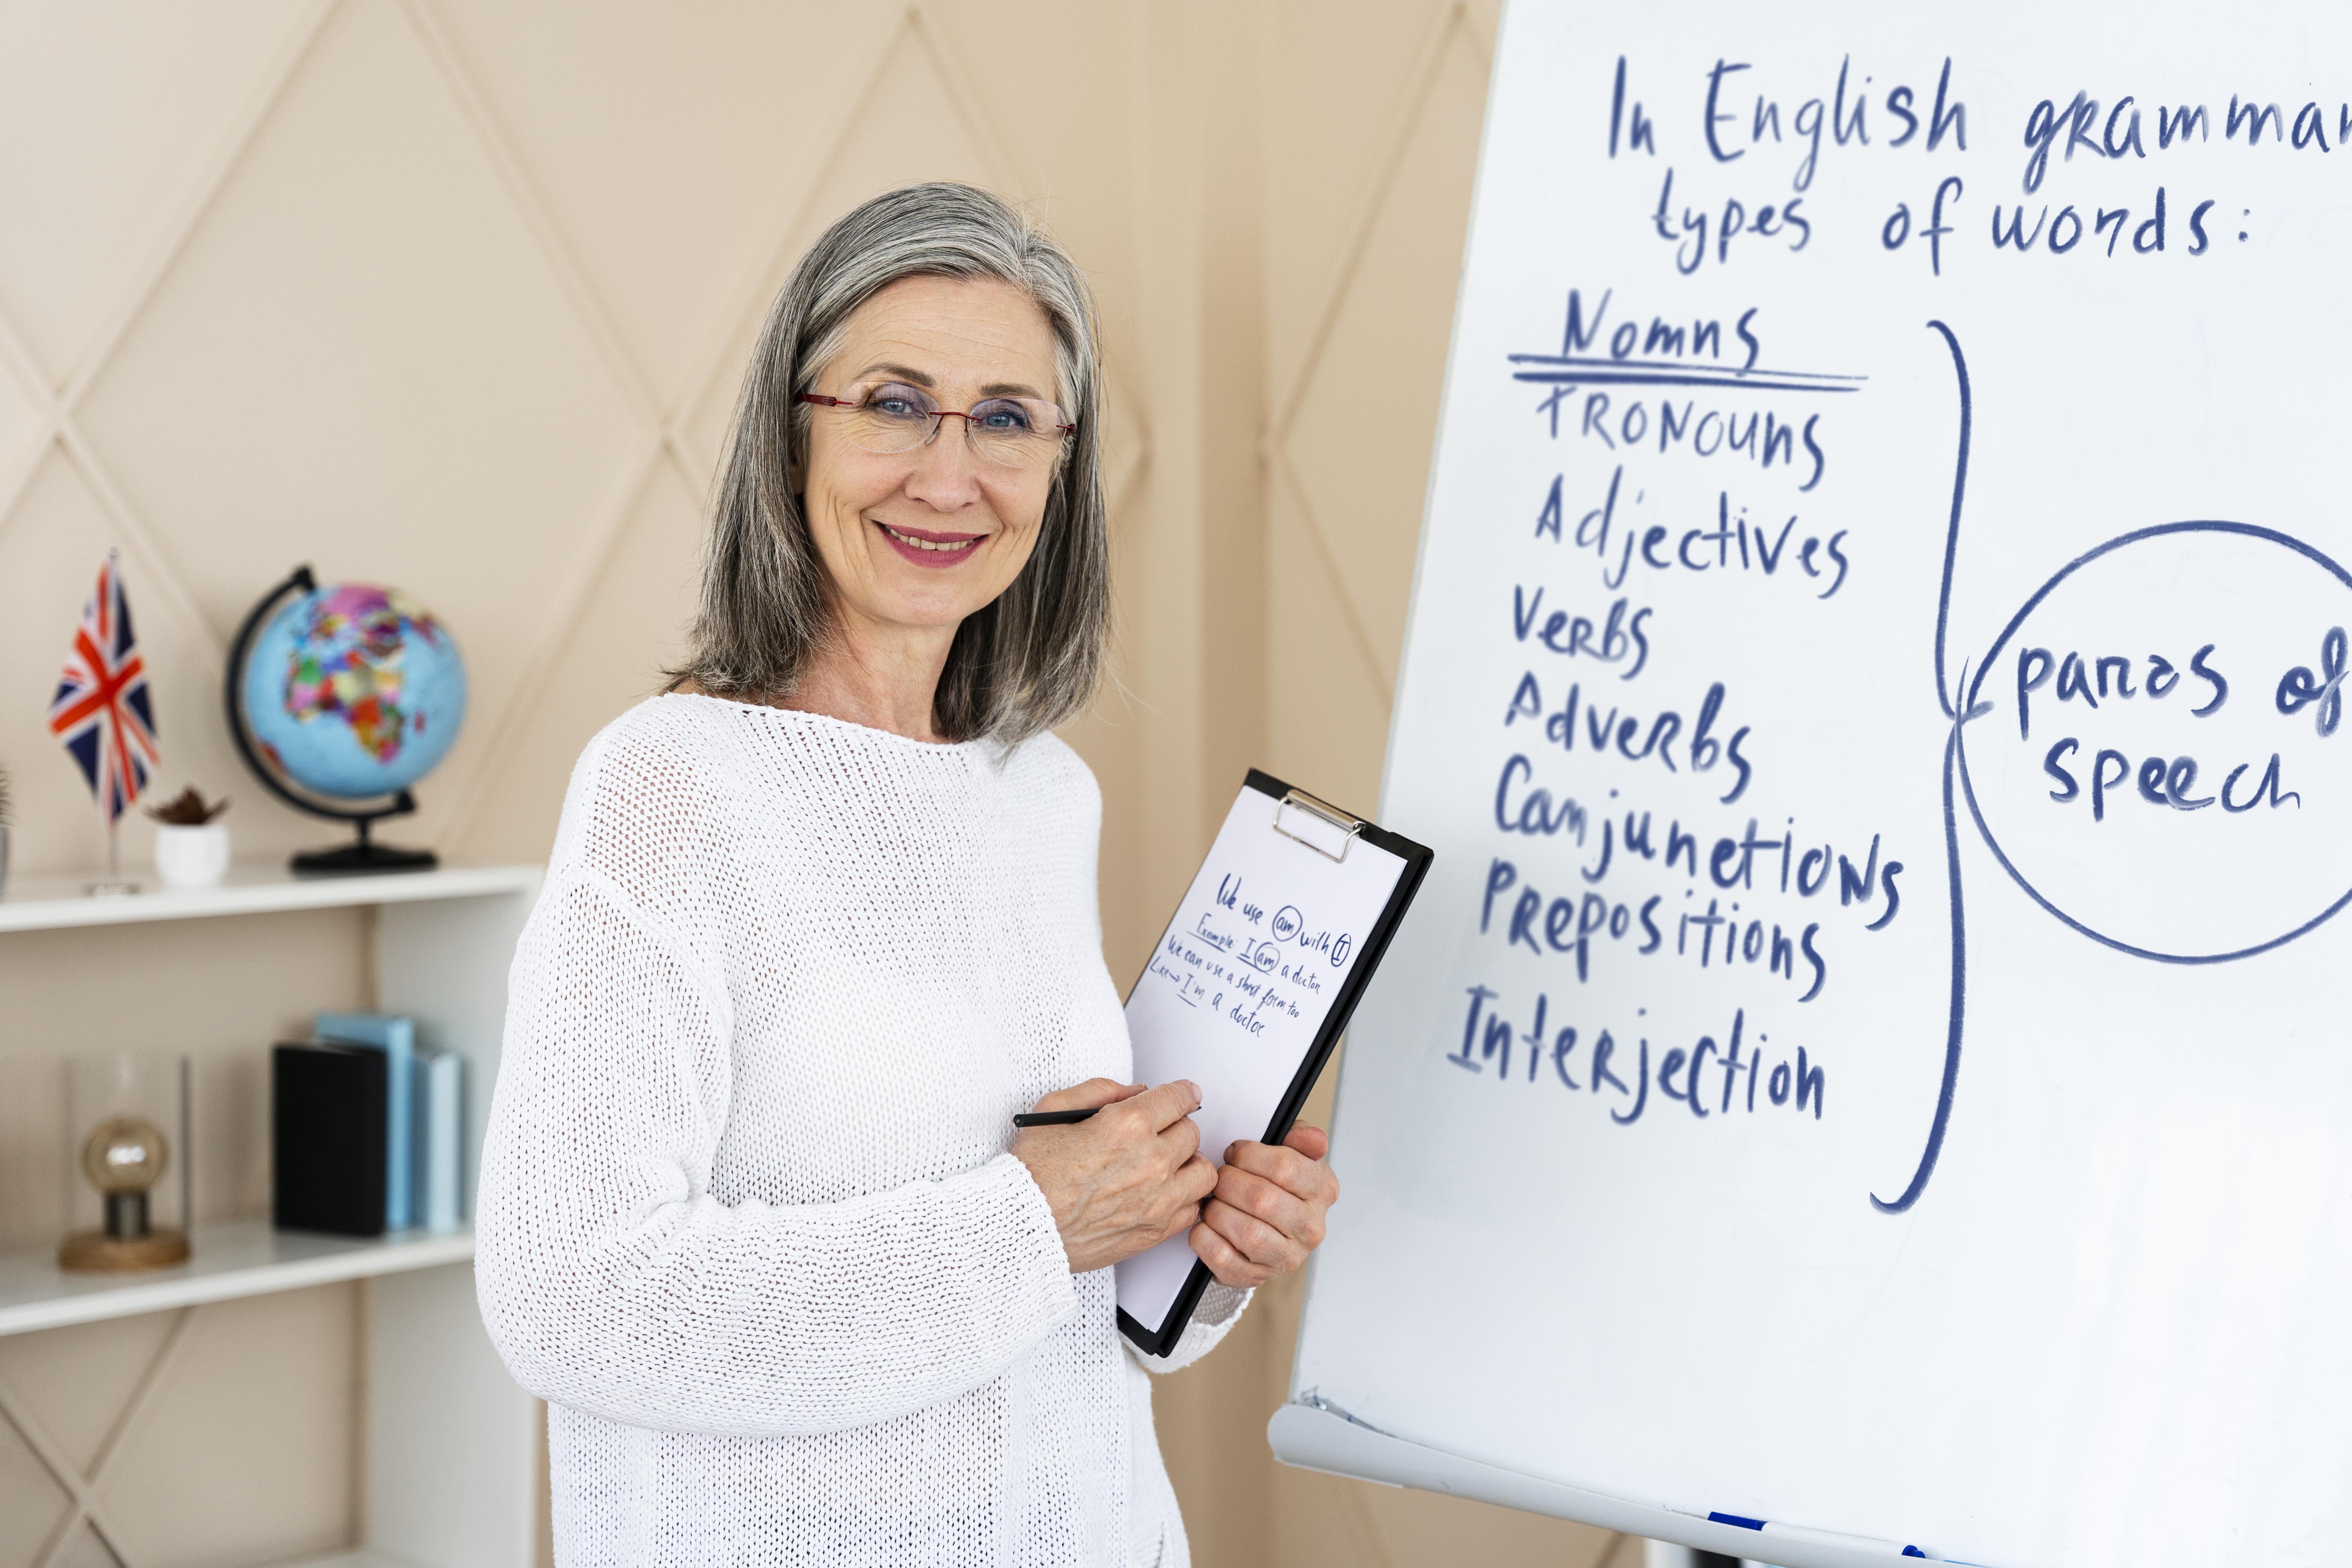 In English grammar
types of words:
Nomns
PRONOUNS
Adjectives
Verbs
Adverbs
Conjunctions
Prepositions
Interjection
parts of
speech
We use am with I
Example: I am a doctor
We can use a short form too
Like → I'm a doctor